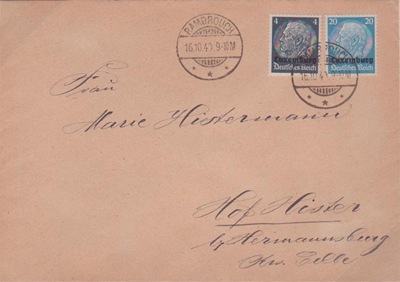 RAMBROUCH
16.10.40.9-10V
4 4
Luxemburg
Deutsches Reich
20 20
Luxemburg
Deutsches Reich
RAMBROUCH
16.10.40
Frau
Marie Histermann
Hof Hister
b/Hermannsburg
Krs. Celle